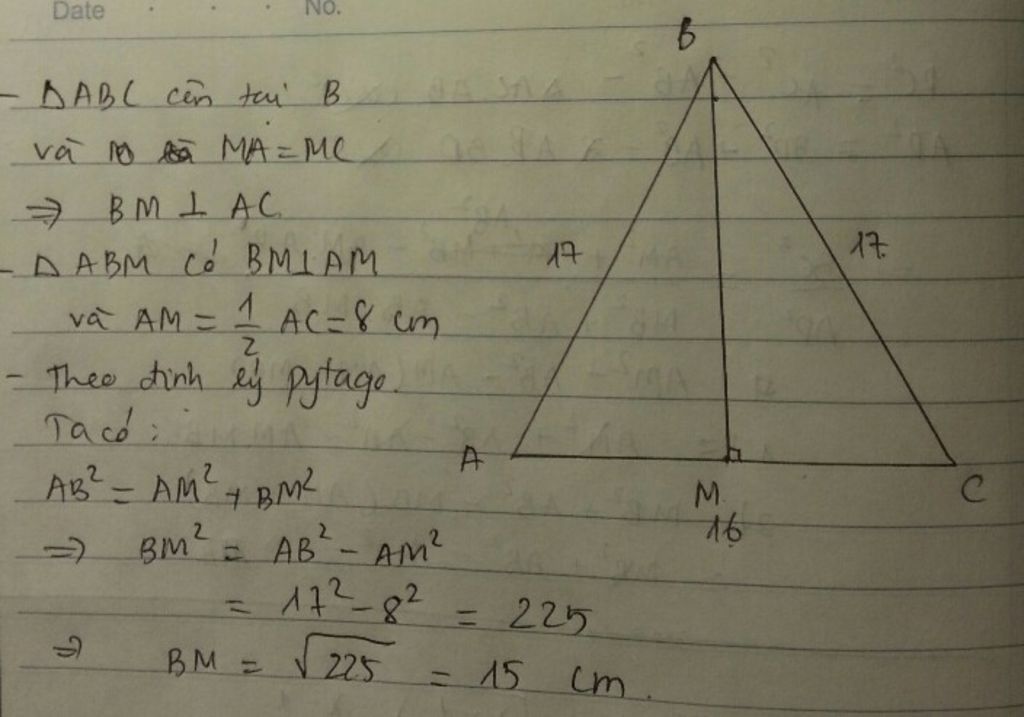 Date No.
- ΔABC cân tại B
và MA = MC
⇒ BM ⊥ AC.
- ΔABM có BM ⊥ AM
và AM = 1/2 AC = 8 cm
- Theo định lý pytago.
Ta có :
AB² = AM² + BM²
⇒ BM² = AB² - AM²
= 17² - 8² = 225
⇒ BM = √225 = 15 cm.
B
17
17.
A
M.
C
16